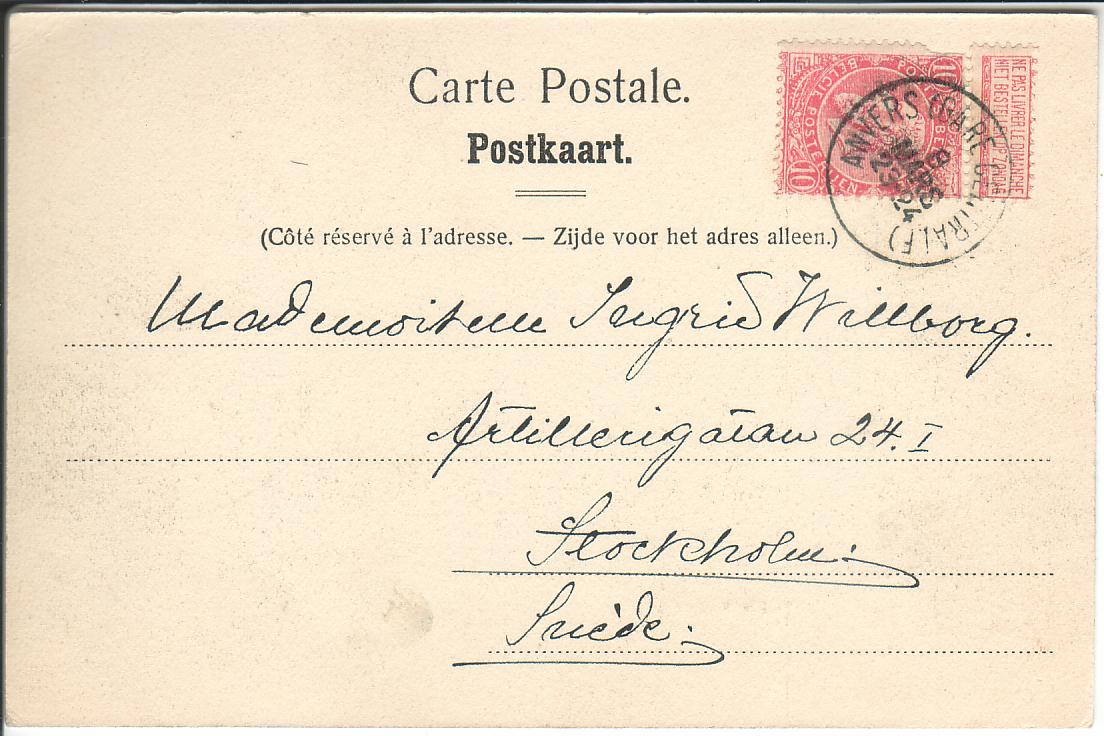 Carte Postale.
Postkaart.
(Côté réservé à l'adresse. — Zijde voor het adres alleen.)
NE PAS LIVRER LE DIMANCHE
NIET BESTELLEN OP ZONDAG
10 10
BELGIE POSTERIJEN
ANVERS (GARE CENTRALE)
8
MARS
23-24
Mademoiselle Ingrid Willborg.
Artillerigatan 24. I
Stockholm.
Suède.